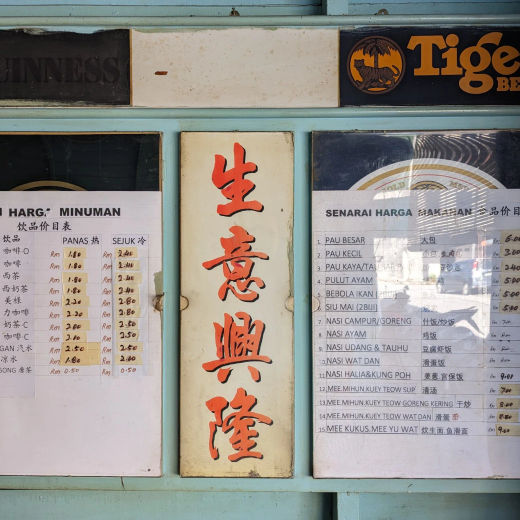 UINNESS
Tige
BE
HARG.
MINUMAN
饮品价目表
饮品 PANAS 热 SEJUK 冷
咖啡-O Rm 1.80 Rm 2.40
咖啡 Rm 1.80 Rm 2.40
西茶 Rm 1.80 Rm 2.40
西奶茶 Rm 1.80 Rm 2.40
美禄 Rm 2.20 Rm 2.80
力咖啡 Rm 2.20 Rm 2.80
奶茶 C Rm 2.00 Rm 2.50
咖啡 C Rm 2.00 Rm 2.50
GAN 汽水 Rm 2.50 Rm 2.50
凉水 Rm 1.80 Rm 2.40
SONG 唐茶 Rm 0.50 Rm 0.50
生意興隆
SENARAI HARGA MAKANAN 品价目表
1 PAU BESAR 大包
2 PAU KECIL
3 PAU KAYA/TAUSAR
4 PULUT AYAM
5 BEBOLA IKAN
6 SIU MAI (2BIJI)
7 NASI CAMPUR/GORENG 什饭/炒饭
8 NASI AYAM 鸡饭
9 NASI UDANG & TAUHU 豆腐虾饭
10 NASI WAT DAN 滑蛋饭
11 NASI HALIA&KUNG POH 姜葱,宫保饭
12 MEE.MIHUN.KUEY TEOW SUP 清汤
13 MEE.MIHUN.KUEY TEOW GORENG KERING 干炒
14 MEE.MIHUN.KUEY TEOW WAT DAN 滑蛋
15 MEE KUKUS.MEE YU WAT 炊生面.鱼滑面